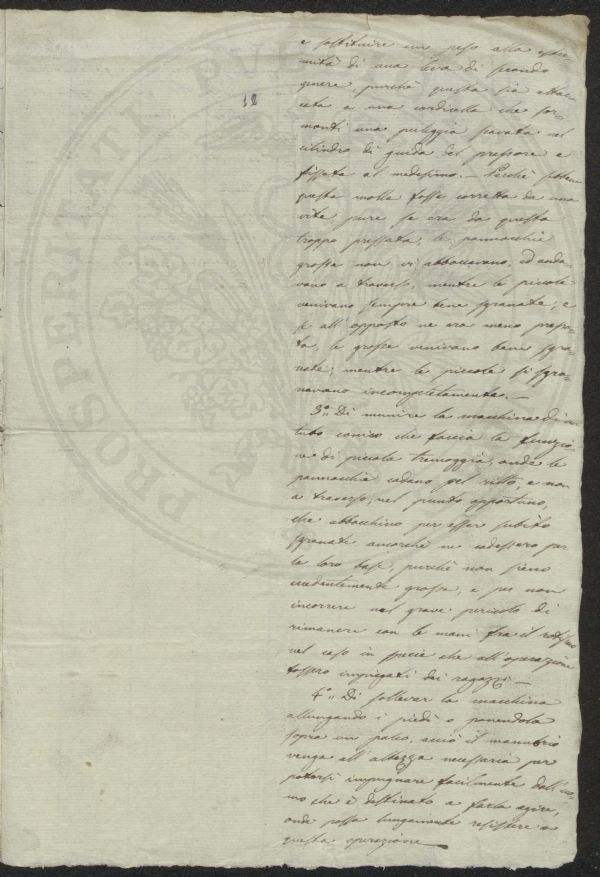 12
e sostituire un peso alla estre=
mità di una leva di secondo
genere, purchè questa sia attac=
cata a una cordicella che sor=
monti una puleggia scavata nel
cilindro di guida del pressore e
fissata al medesimo. — Perchè
questa molla fosse corretta da una
vite pure se era da questa
troppo pressata, le pannocchie
grosse non vi abboccavano, ed anda=
vano a traverso, mentre le piccole
venivano sempre bene sgranate; e
se all'opposto ne era meno pressa=
ta, le grosse venivano bene sgra=
nate; mentre le piccole si sgra=
navano incompletamente. —
3.o Di munire la macchina di un
tubo conico che faccia la funzio=
ne di piccola tramoggia, onde le
pannocchie cadano pel ritto, e non
a traverso, nel punto opportuno,
che abbocchino per esser subito
sgranate ancorchè ne cadessero per
la loro base, purchè non sieno
eccedentemente grosse, e per non
incorrere nel grave pericolo di
rimanere con le mani fra il
nel caso in specie che all'operazione
fossero impiegati dei ragazzi —
4.o Di sollevar la macchina
allungando i piedi o ponendola
sopra un palco, acciò il manubrio
venga all'altezza necessaria per
potersi impugnare facilmente dall'uo=
mo che è destinato a farla agire,
onde possa lungamente resistere a
questa operazione —
PROSPERITATI PUBLICAE